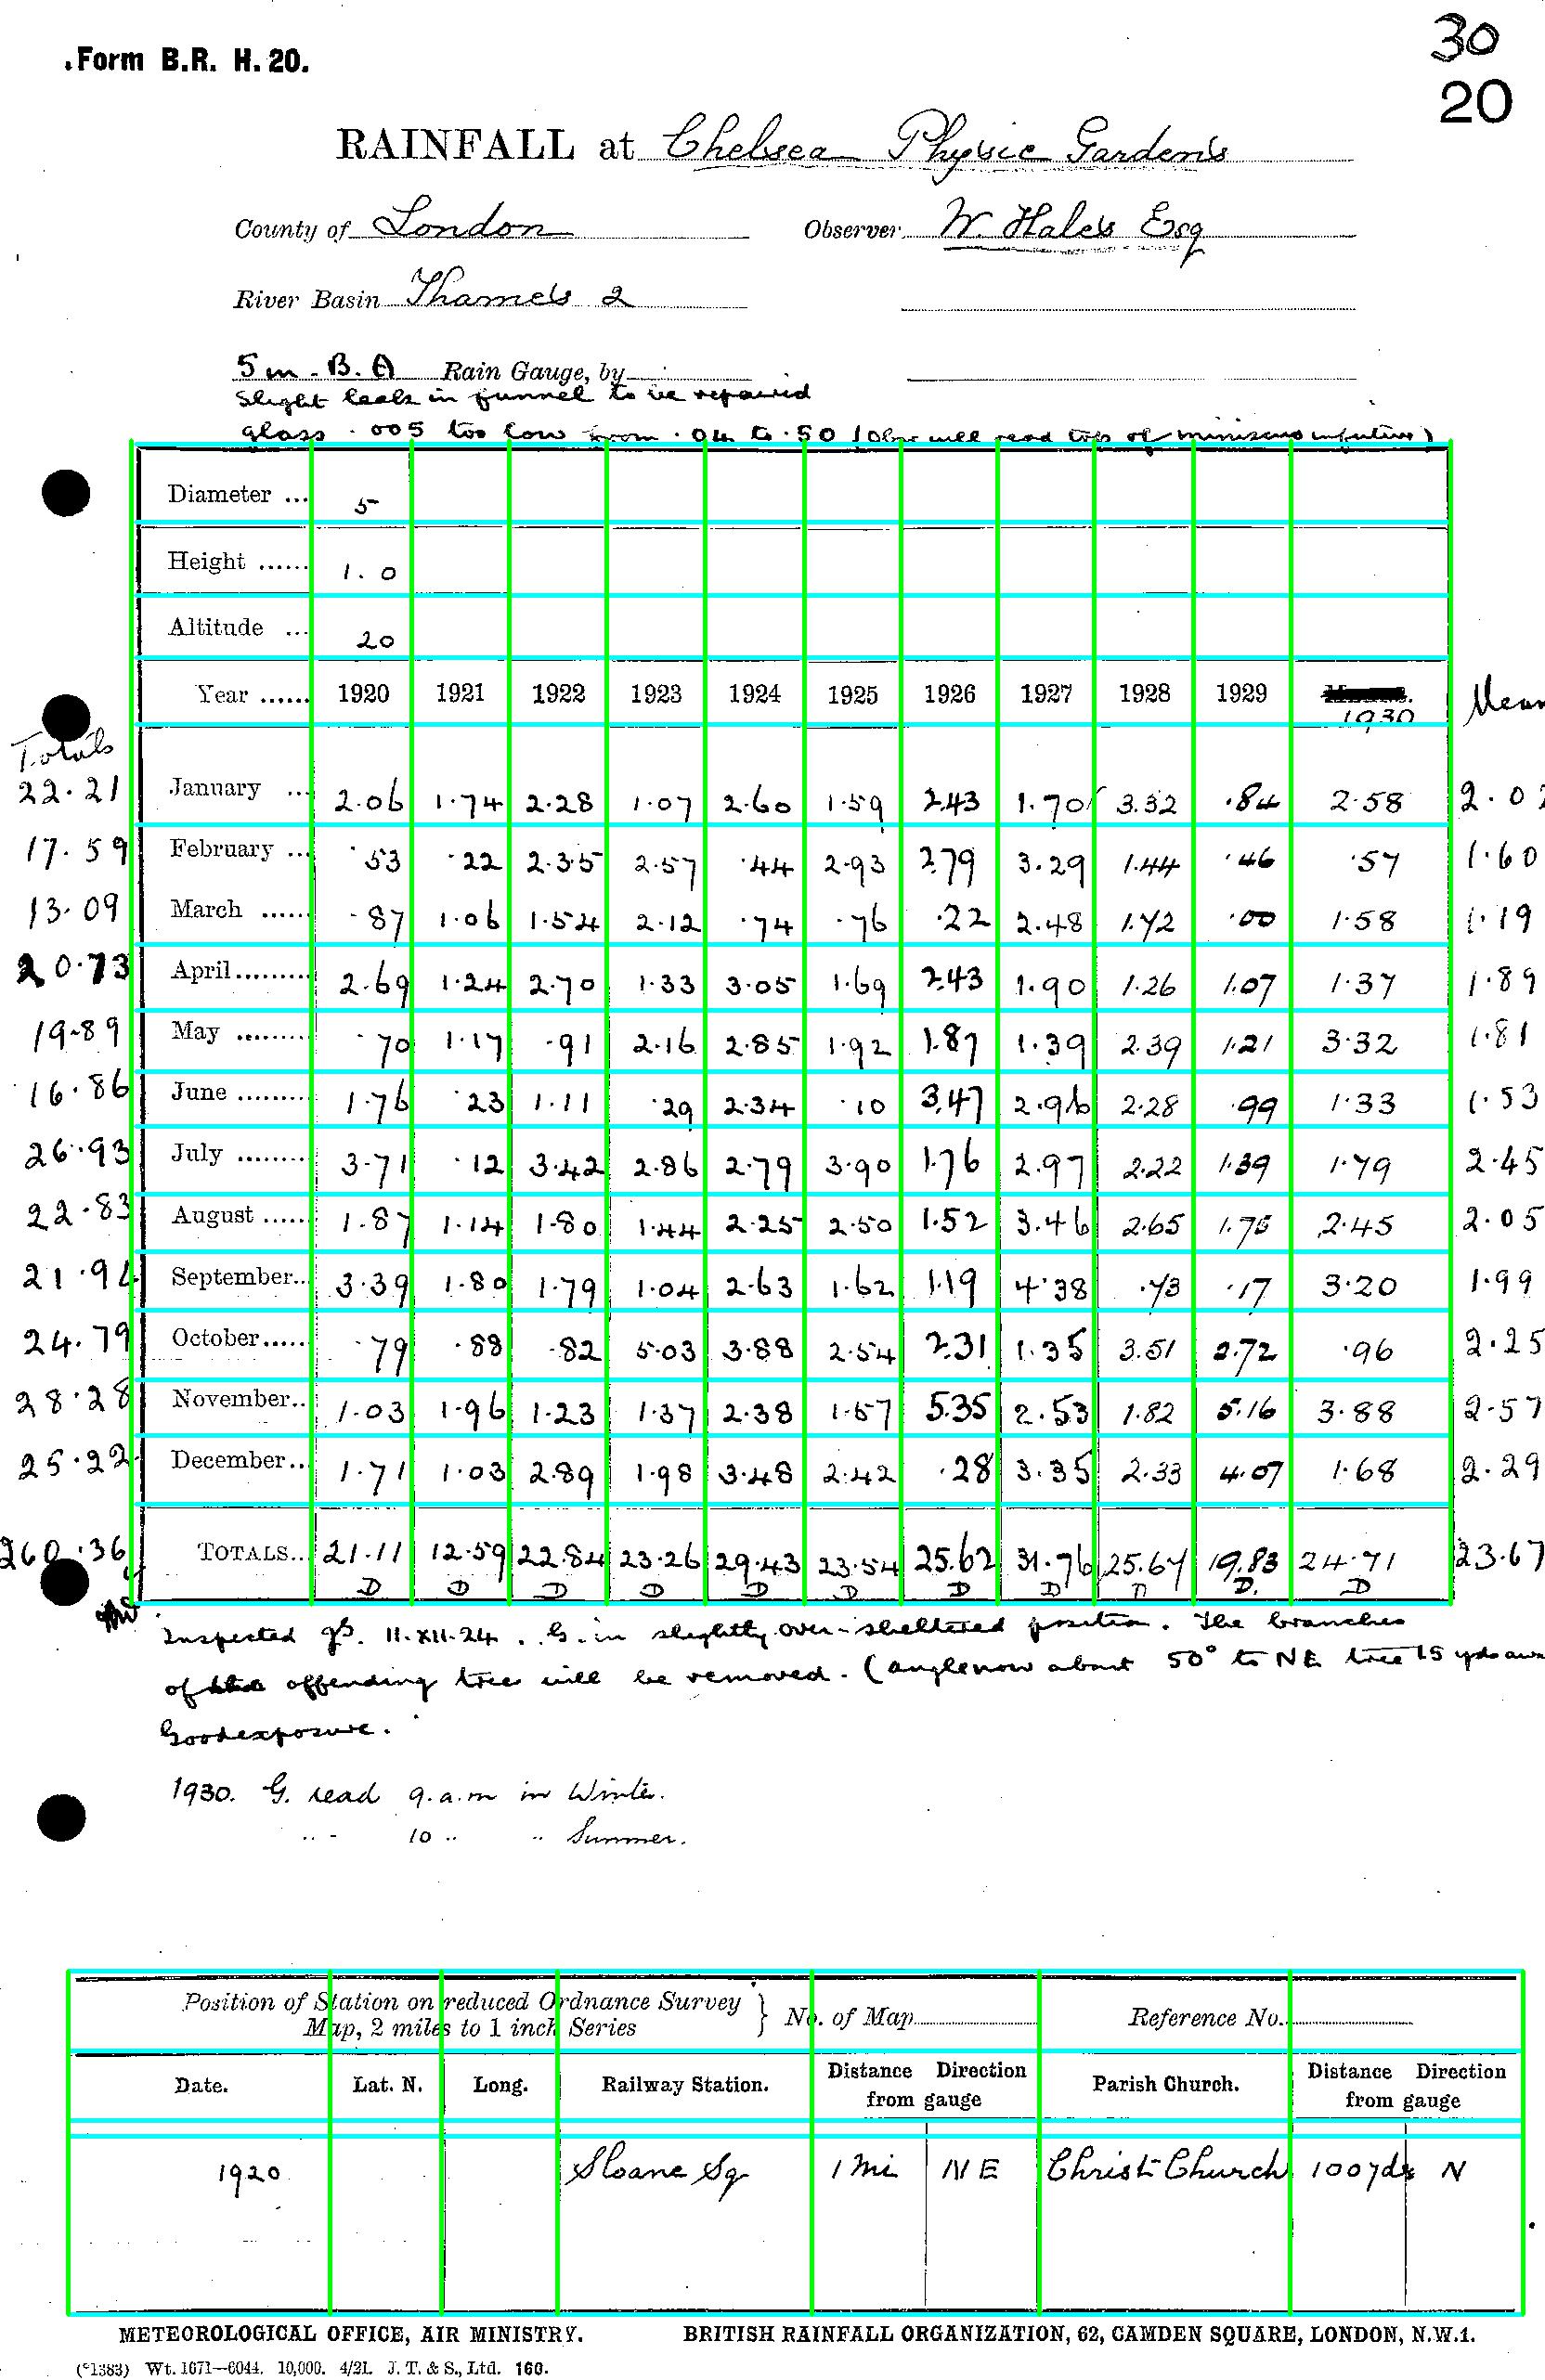 Form B.R. H. 20.
30
20
RAINFALL at Chelsea Physic Gardens
County of London Observer W. Hales Esq
River Basin Thames 2
5 in. B.A Rain Gauge, by
Slight leak in funnel to be repaired
glass .005 too low from .04 to .50 (Obsr will read top of miniscus in future)
Diameter ... 5
Height ...... 1.0
Altitude ... 20
Year ...... 1920 1921 1922 1923 1924 1925 1926 1927 1928 1929 1930 Mean
Totals
22.21 January ... 2.06 1.74 2.28 1.07 2.60 1.59 2.43 1.70 3.32 .84 2.58 2.02
17.59 February ... .53 .22 2.35 2.57 .44 2.93 2.79 3.29 1.44 .46 .57 1.60
13.09 March ...... .87 1.06 1.54 2.12 .74 .76 .22 2.48 1.72 .00 1.58 1.19
20.73 April ......... 2.69 1.24 2.70 1.33 3.05 1.69 2.43 1.90 1.26 1.07 1.37 1.89
19.89 May ......... .70 1.17 .91 2.16 2.85 1.92 1.87 1.39 2.39 1.21 3.32 1.81
16.86 June ......... 1.76 .23 1.11 .29 2.34 .10 3.47 2.96 2.28 .99 1.33 1.53
26.93 July ......... 3.71 .12 3.42 2.86 2.79 3.90 1.76 2.97 2.22 1.39 1.79 2.45
22.83 August ...... 1.87 1.14 1.80 1.44 2.25 2.50 1.52 3.46 2.65 1.75 2.45 2.05
21.94 September.. 3.39 1.80 1.79 1.04 2.63 1.62 1.19 4.38 .73 .17 3.20 1.99
24.79 October..... .79 .88 .82 5.03 3.88 2.54 2.31 1.35 3.51 2.72 .96 2.25
28.28 November.. 1.03 1.96 1.23 1.37 2.38 1.57 5.35 2.53 1.82 5.16 3.88 2.57
25.22 December.. 1.71 1.03 2.89 1.98 3.48 2.42 .28 3.35 2.33 4.07 1.68 2.29
260.36 TOTALS.. 21.11 12.59 22.84 23.26 29.43 23.54 25.62 31.76 25.67 19.83 24.71 23.67
D D D D D D D D D D. D
Inspected 11.XII.24. G. in slightly over-sheltered position. The branches
of offending tree will be removed. (angle now about 50° to NE tree 15 yds
Good exposure.
1930. G. read 9.a.m in Winter.
.. - 10 .. .. Summer.
Position of Station on reduced Ordnance Survey
Map, 2 miles to 1 inch Series } No. of Map Reference No.
Date. Lat. N. Long. Railway Station. Distance Direction from gauge Parish Church. Distance Direction from gauge
1920 Sloane Sq 1 mi NE Christ Church 100 yds N
METEOROLOGICAL OFFICE, AIR MINISTRY. BRITISH RAINFALL ORGANIZATION, 62, CAMDEN SQUARE, LONDON, N.W.1.
(*1383) Wt. 1671—6044. 10,000. 4/21. J. T. & S., Ltd. 160.